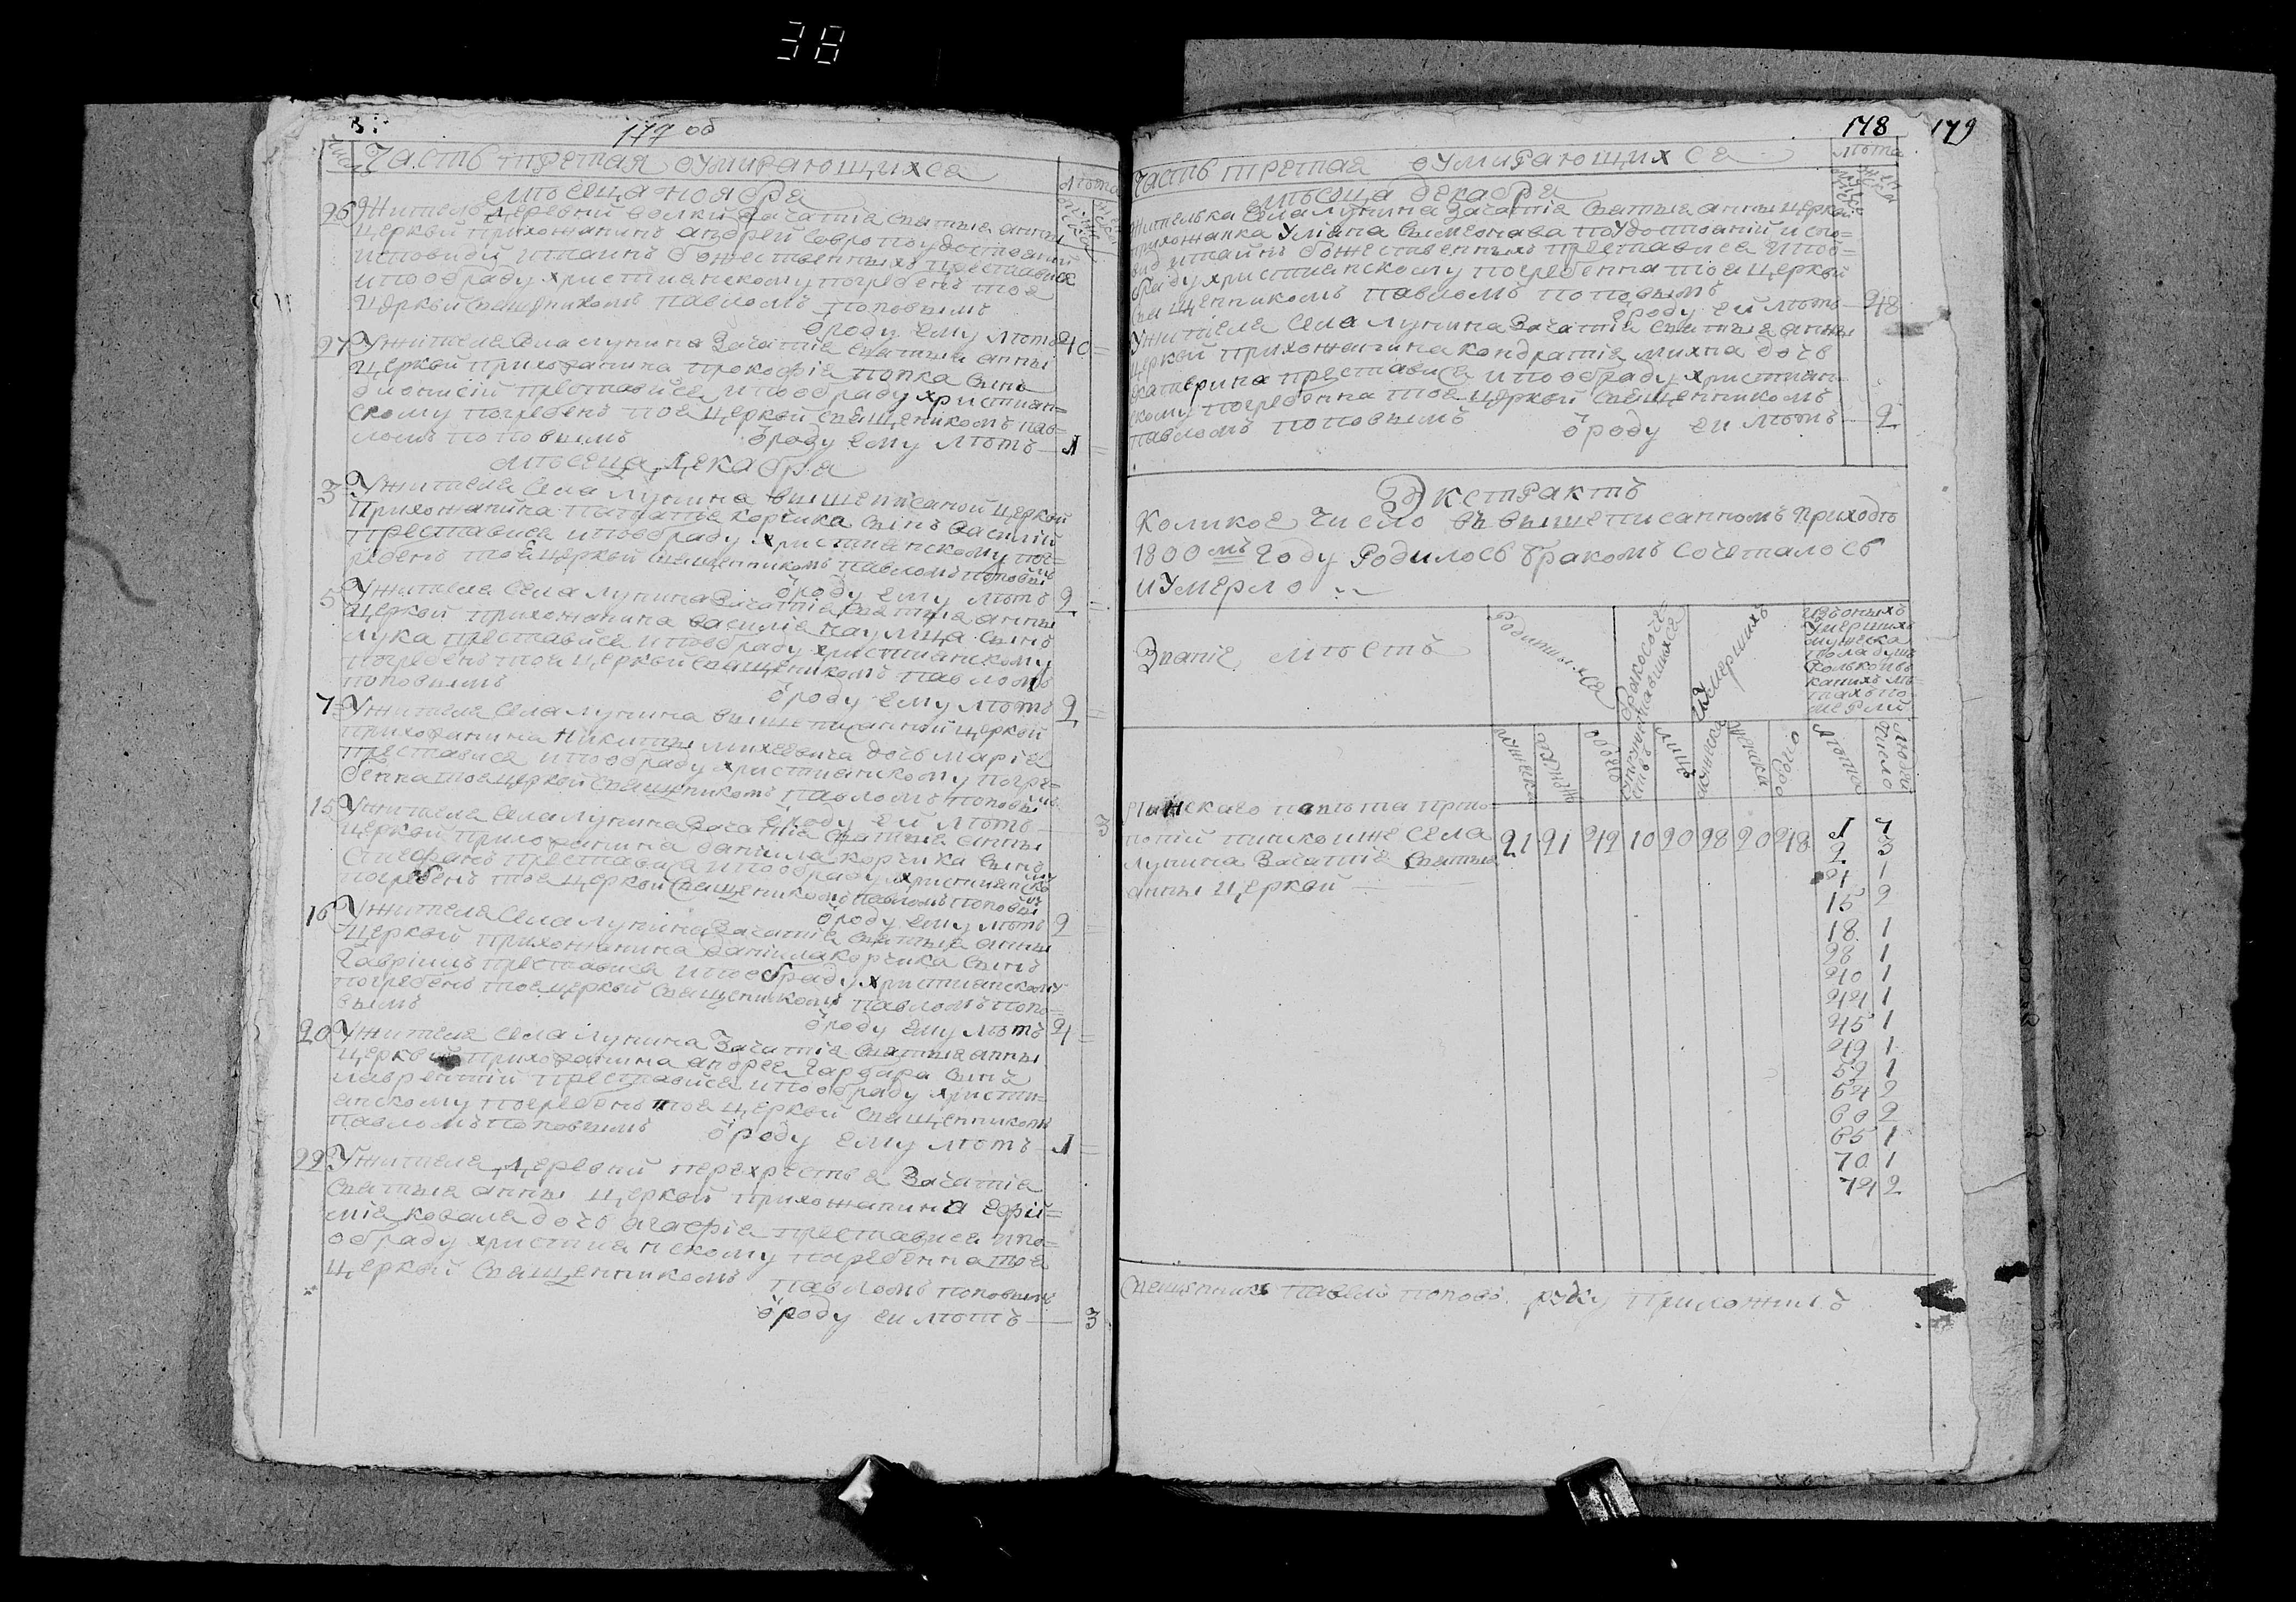 38
177 об
Часть третая оумирающихса
Лѣта
мѣсеца ноября
26 Житель деревни Волки Зачатіа Святыя анны
церкви прихожанинъ андрей по удостоаній
исповиди итаинъ божественныхъ преставися
ипообраду христианскому погребенъ тоя
церкви священикомъ павломъ поповымъ
ѿроду ему лѣтъ 40
27 Ужителя Села лунина Зачатіа Святыя анны
церкви прихожанина прокофія попка Сынъ
дионисій преставися ипообраду христиан=
скому погребенъ тоя церкви священикомъ пав=
ломъ поповымъ ѿроду ему лѣтъ 1
мѣсеца Декабра
3 Ужителя Села лунина вышеписаной церкви
Прихожанина игнатіа корчика Сынъ василій
преставися ипообраду христианскому пог=
ребенъ тоя церкви священникомъ павломъ поповымъ
ѿроду ему лѣтъ 2
5 Ужителя Села лунина Зачатіа Святыя анны
церкви прихожанина василіа Сынъ
лука преставися ипообраду христианскому
погребенъ тоя церкви священикомъ павломъ
поповымъ ѿроду ему лѣтъ 2
7 Ужителя Села лунина вышеписанной церкви
прихожанина Никиты михеевича дочь маріа
преставися ипообраду христианскому погре=
бенна тоя церкви священикомъ павломъ поповымъ
ѿроду ей лѣтъ 3
15 Ужителя Села лунина Зачатіа Святыя анны
церкви прихожанина данила корчика Сынъ
Стефанъ преставися ипообраду христианско
погребенъ тоя церкви священикомъ павломъ поповымъ
ѿроду ему лѣтъ 2
16 Ужителя Села лунина Зачатіа Святыя анны
церкви прихожанина данила корчика Сынъ
Гавріилъ преставися ипообраду христианскому
погребенъ тоя церкви священикомъ павломъ попо=
вымъ ѿроду ему лѣтъ 4
20 Ужителя Села лунина Зачатіа Святыя анны
церкви прихожанина андрея Сынъ
лаврентій преставися ипообраду христи=
анскому погребенъ тоя церкви священникомъ
павломъ поповымъ ѿроду ему лѣтъ 1
22 Ужителя Деревни перехрестья Зачатіа
Святыя анны церкви прихожанина Ефи=
міа коваля дочь агафіа преставися ипо=
обраду христианскому погребенна тоя
церкви священникомъ павломъ поповымъ
ѿроду ей лѣтъ 3
178 179
Часть третая оумирающихся
лѣта
мѣсеца декабра
Жителька Села лунина Зачатіа Святыя анны церкви
прихожанка Уліана по удостоаній испо=
вид итайнъ божественныхъ преставися ипооб=
раду христианскому погребенна тоя церкви
священникомъ павломъ поповымъ
ѿроду ей лѣтъ 48
Ужителя Села лунина Зачатіа Святыя анны
церкви прихожанина кондратіа михна дочь
катерина преставися ипообраду христиан=
скому погребенна тоя церкви священникомъ
павломъ поповымъ ѿроду ей лѣтъ 2
Экстрактъ
Коликое число въ вышеписанномъ приходѣ
1800мъ Году Родилось бракомъ сочеталось
иУмерло
Званіе мѣстъ
Родившихся
бракосоче=
тавшихся
Умершихъ
изъ оныхъ
Умершихъ
мужеска
пола душъ
колько въ
какихъ лѣ=
тахъ по=
мерли
мужеска
женска
обоего
лицъ
мужеска
женска
обоего
лѣта
число
людей
Пинскаго повѣта прото=
попій пинской же Села
лунина Зачатіа Святыя
анны церкви
21 21 42 10 20 28 20 48
1 7
2 3
4 1
15 2
18 1
28 1
40 1
44 1
45 1
49 1
52 1
54 2
60 2
65 1
70 1
74 2
Священникъ Павелъ поповъ руку приложилъ